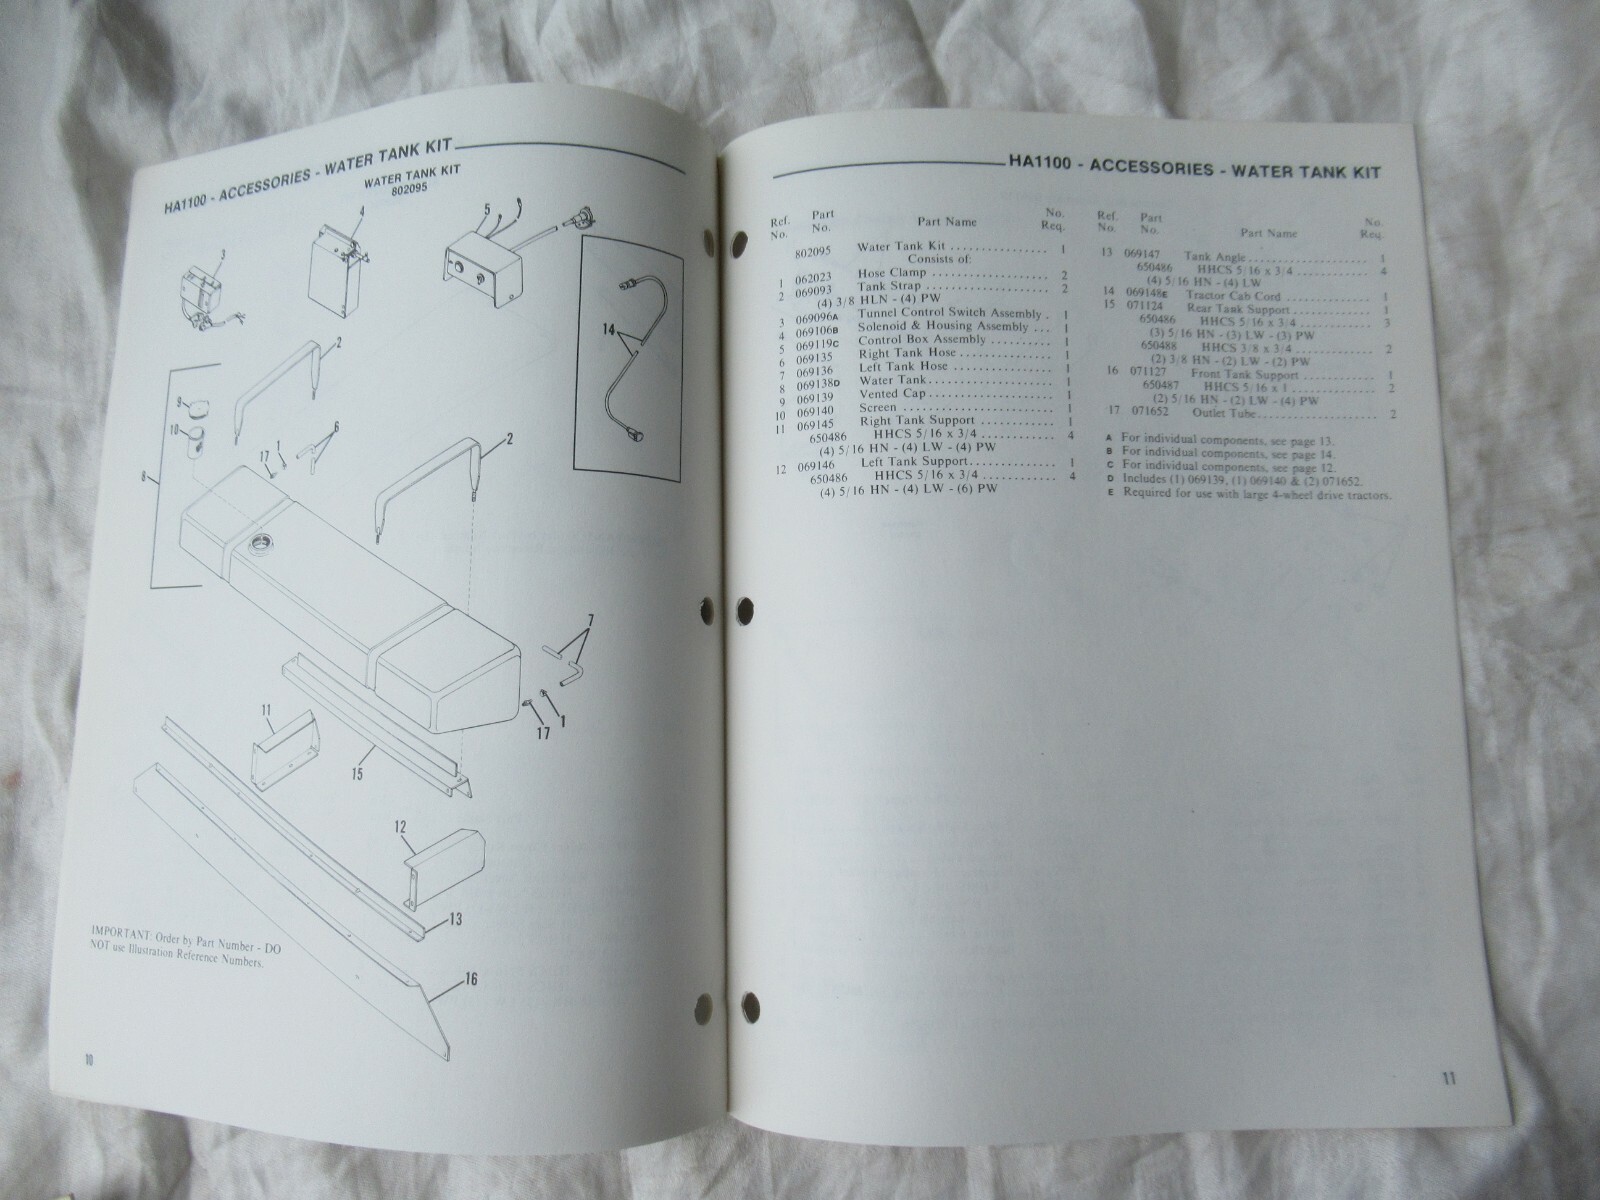 HA1100 - ACCESSORIES - WATER TANK KIT
WATER TANK KIT
802095
3
4
5
14
2
8
9
10
17
1
6
2
7
1
17
11
15
12
13
16
IMPORTANT: Order by Part Number - DO
NOT use Illustration Reference Numbers.
10
HA1100 - ACCESSORIES - WATER TANK KIT
Ref. No. Part No. Part Name No. Req.
802095 Water Tank Kit . . . . . . . . . . . . . . . 1
Consists of:
1 062023 Hose Clamp . . . . . . . . . . . . . . . . . 2
2 069093 Tank Strap . . . . . . . . . . . . . . . . . . 2
(4) 3/8 HLN - (4) PW
3 069096A Tunnel Control Switch Assembly . 1
4 069106B Solenoid & Housing Assembly . . . 1
5 069119C Control Box Assembly . . . . . . . . . 1
6 069135 Right Tank Hose . . . . . . . . . . . . . . 1
7 069136 Left Tank Hose . . . . . . . . . . . . . . . 1
8 069138D Water Tank . . . . . . . . . . . . . . . . . . 1
9 069139 Vented Cap . . . . . . . . . . . . . . . . . . 1
10 069140 Screen . . . . . . . . . . . . . . . . . . . . . . 1
11 069145 Right Tank Support . . . . . . . . . . . 1
650486 HHCS 5/16 x 3/4 . . . . . . . . . . . 4
(4) 5/16 HN - (4) LW - (4) PW
12 069146 Left Tank Support . . . . . . . . . . . . . 1
650486 HHCS 5/16 x 3/4 . . . . . . . . . . . 4
(4) 5/16 HN - (4) LW - (6) PW
Ref. No. Part No. Part Name No. Req.
13 069147 Tank Angle . . . . . . . . . . . . . . . . . . 1
650486 HHCS 5/16 x 3/4 . . . . . . . . . . . 4
(4) 5/16 HN - (4) LW
14 069148E Tractor Cab Cord . . . . . . . . . . . . . 1
15 071124 Rear Tank Support . . . . . . . . . . . . 1
650486 HHCS 5/16 x 3/4 . . . . . . . . . . . 3
(3) 5/16 HN - (3) LW - (3) PW
650488 HHCS 3/8 x 3/4 . . . . . . . . . . . . 2
(2) 3/8 HN - (2) LW - (2) PW
16 071127 Front Tank Support . . . . . . . . . . . 1
650487 HHCS 5/16 x 1 . . . . . . . . . . . . . 2
(2) 5/16 HN - (2) LW - (4) PW
17 071652 Outlet Tube . . . . . . . . . . . . . . . . . . 2
A For individual components, see page 13.
B For individual components, see page 14.
C For individual components, see page 12.
D Includes (1) 069139, (1) 069140 & (2) 071652.
E Required for use with large 4-wheel drive tractors.
11